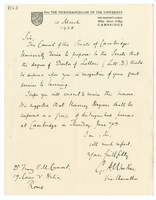 FROM THE VICE-CHANCELLOR OF THE UNIVERSITY
THE MASTER'S LODGE
CAMBRIDGE
10 March
Sir,
The Council of the Senate of Cambridge
University desire to propose to the Senate that
the degree of Doctor of Letters (Litt. D.) should
be conferred upon you in recognition of your great
service to learning.
I hope you will consent to receive this.
It is suggested that Honorary Degrees shall be
conferred on a group of distinguished persons
at Cambridge on Thursday, June
I am, Sir,
with much respect,
yours faithfully
Vice Chancellor
Rome